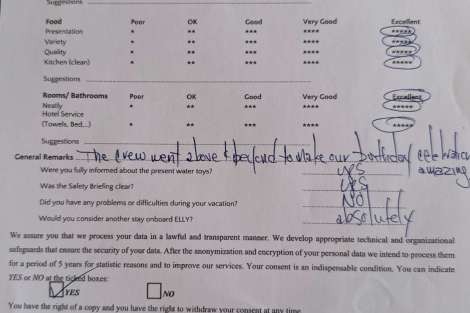 Suggestions
Food Poor OK Good Very Good Excellent
Presentation * ** *** **** *****
Variety * ** *** **** *****
Quality * ** *** **** *****
Kitchen (clean) * ** *** **** *****
Suggestions
Rooms/ Bathrooms Poor OK Good Very Good Excellent
Neatly * ** *** **** *****
Hotel Service
(Towels, Bed,..) * ** *** **** *****
Suggestions
General Remarks The crew went above & beyond to make our birthday celebration
amazing
Were you fully informed about the present water toys? yes
Was the Safety Briefing clear? Yes
Did you have any problems or difficulties during your vacation? NO
Would you consider another stay onboard ELLY? absolutely
We assure you that we process your data in a lawful and transparent manner. We develop appropriate technical and organizational
safeguards that ensure the security of your data. After the anonymization and encryption of your personal data we intend to process them
for a period of 5 years for statistic reasons and to improve our services. Your consent is an indispensable condition. You can indicate
YES or NO at the ticked boxes:
YES NO
You have the right of a copy and you have the right to withdraw your consent at any time